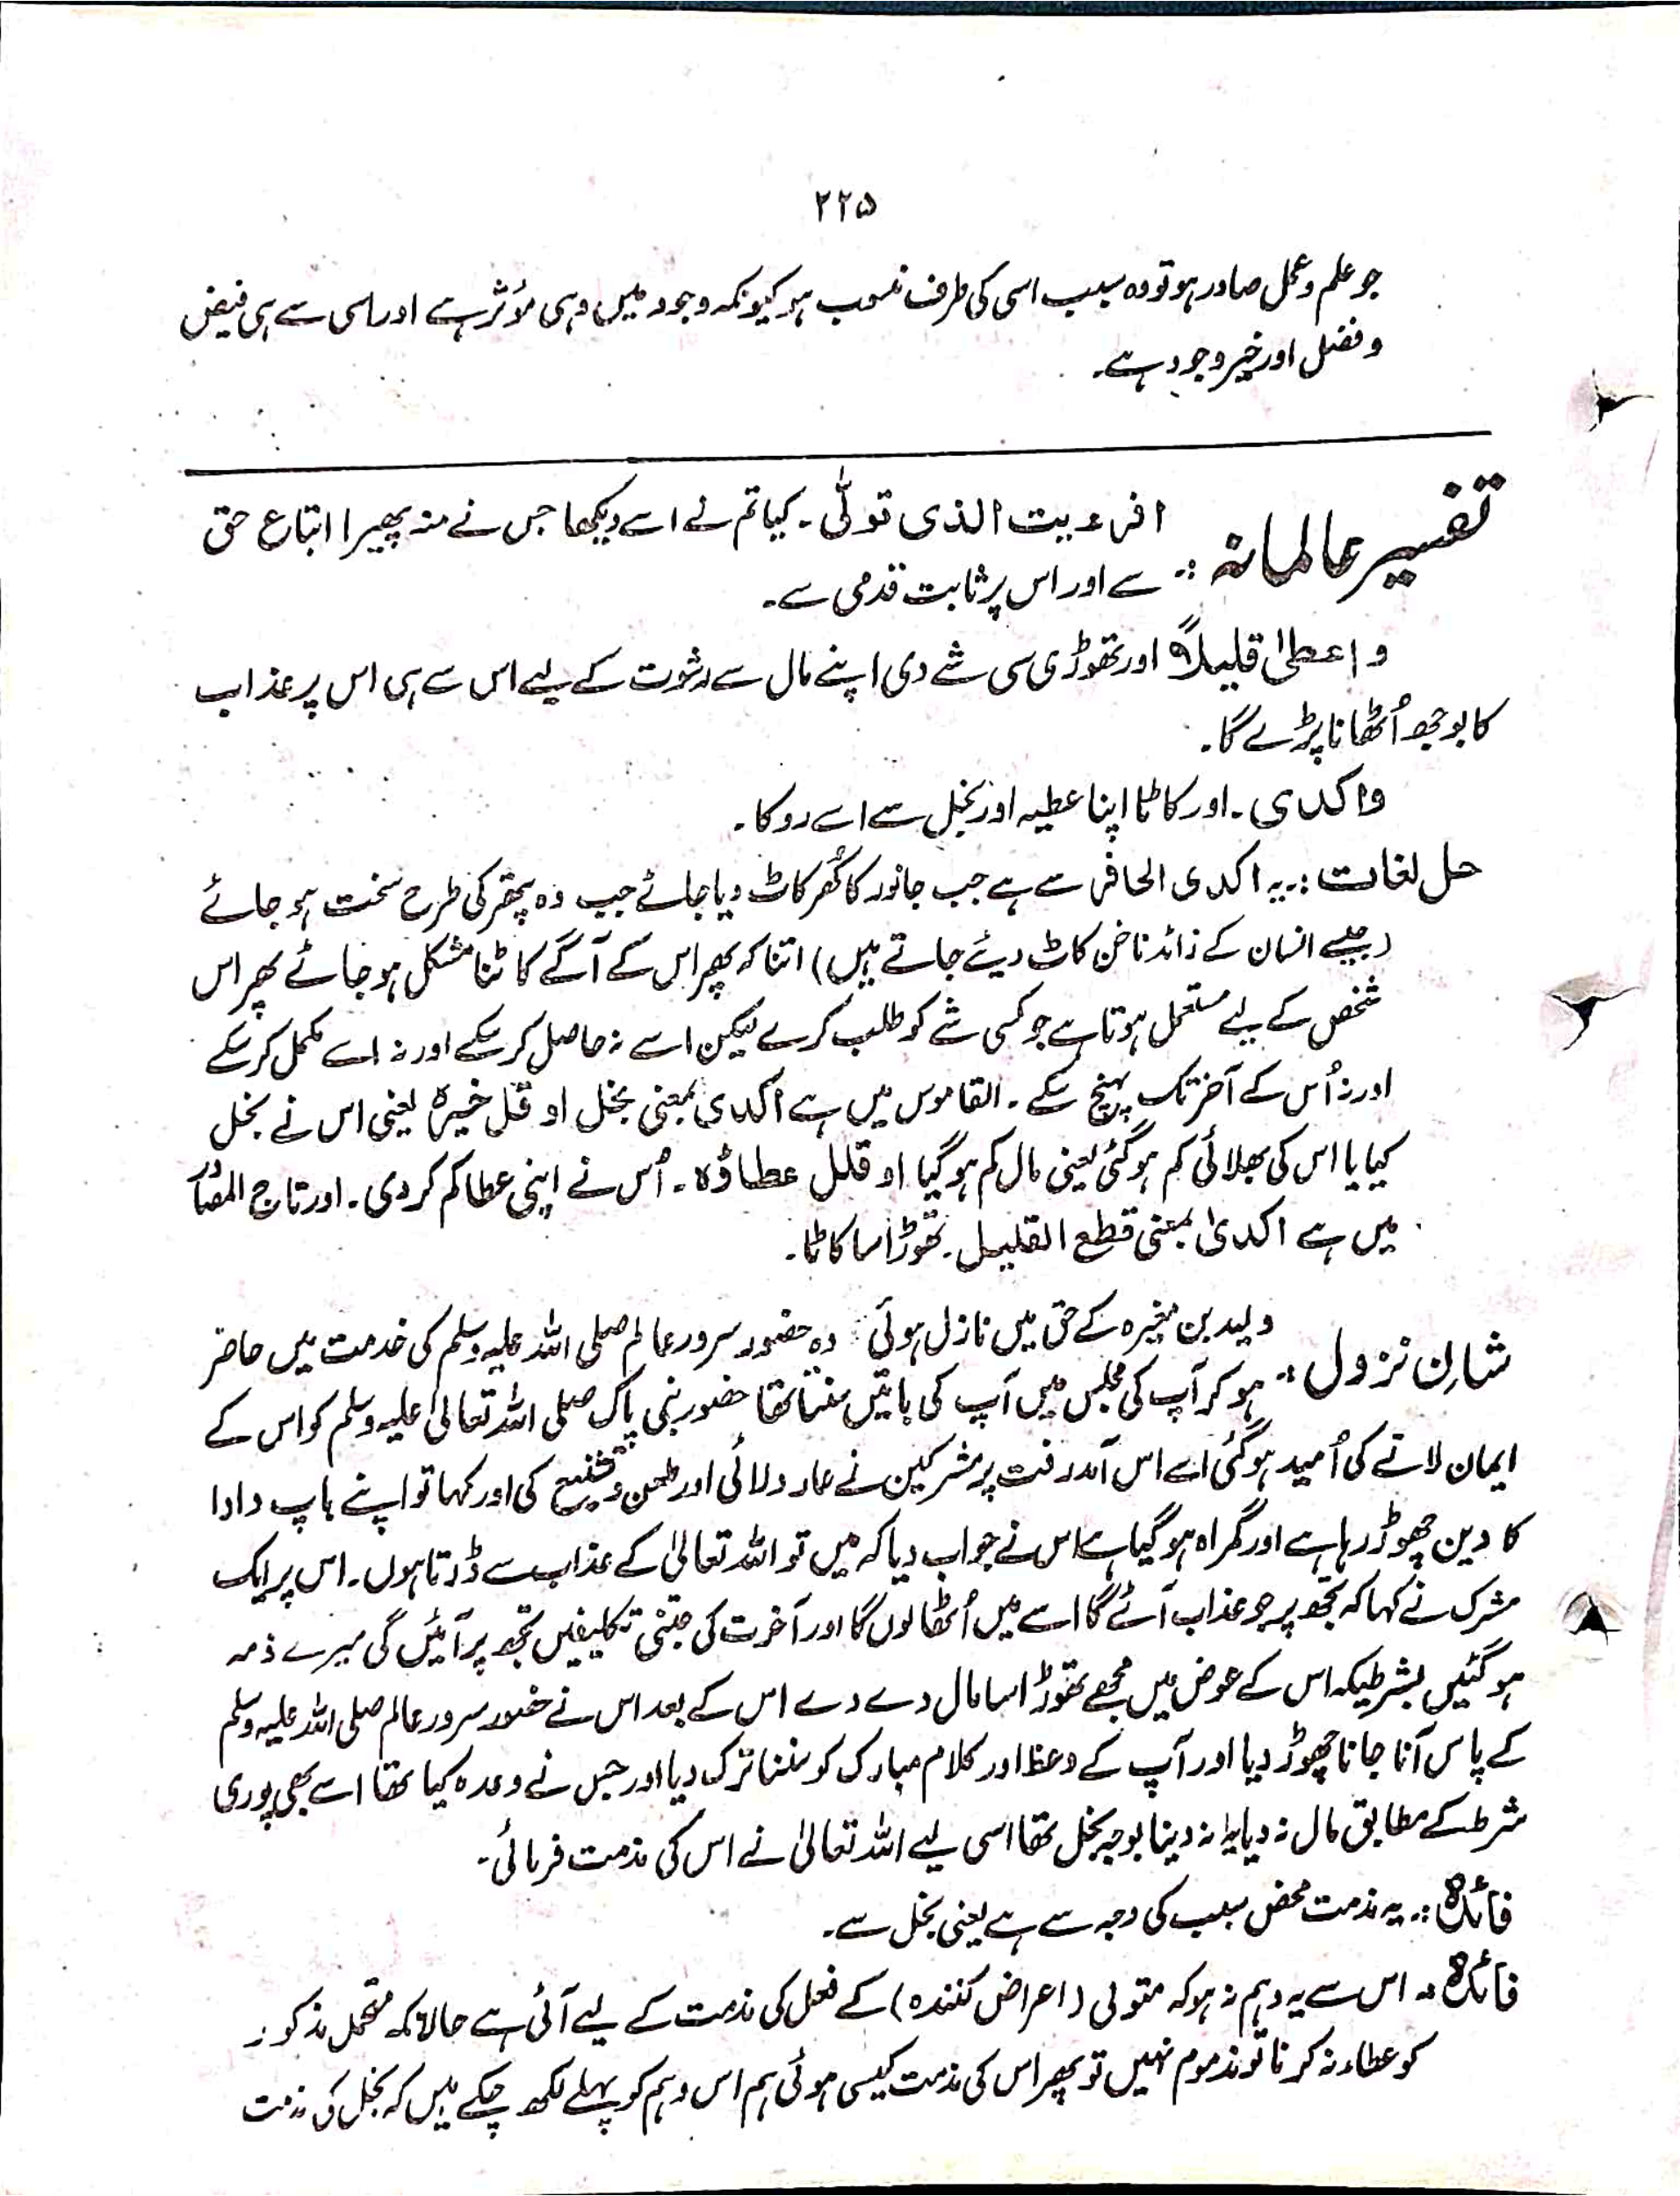 ۲۲۵
جو علم و عمل صادر ہو تو وہ سبب اسی کی طرف منسوب ہو کیونکہ وجود میں وہی مؤثر ہے اور اسی سے ہی فیض
و فضل اور خیر وجود ہے۔
تفسیر عالمانہ :۔ افرءیت الذی تولّٰی ۔ کیا تم نے اسے دیکھا جس نے منہ پھیرا اتباع حق
سے اور اس پر ثابت قدمی سے۔
و اعطیٰ قلیلاً اور تھوڑی سی شے دی اپنے مال سے رشوت کے لیے اس سے ہی اس پر عذاب
کا بوجھ اُٹھانا پڑے گا۔
واکدی ۔ اور کاٹا اپنا عطیہ اور بخل سے اسے روکا ۔
حل لغات :۔ یہ اکدی الحافر سے ہے جب جانور کا کُھر کاٹ دیا جائے جب وہ پتھر کی طرح سخت ہو جائے
(جیسے انسان کے زائد ناخن کاٹ دیئے جاتے ہیں) اتنا کہ پھر اس کے آگے کاٹنا مشکل ہو جائے پھر اس
شخص کے لیے مستعمل ہوتا ہے جو کسی شے کو طلب کرے لیکن اسے نہ حاصل کر سکے اور نہ اسے مکمل کر سکے
اور نہ اُس کے آخر تک پہنچ سکے ۔ القاموس میں ہے اکدی بمعنی بخل او قل خیرہ یعنی اس نے بخل
کیا یا اس کی بھلائی کم ہو گئی یعنی مال کم ہو گیا او قلل عطاؤہ ۔ اُس نے اپنی عطا کم کر دی ۔ اور تاج المصادر
میں ہے اکدیٰ بمعنی قطع القلیل ۔ تھوڑا سا کاٹا ۔
شانِ نزول :۔ ولید بن مغیرہ کے حق میں نازل ہوئی وہ حضور سرور عالم صلی اللہ علیہ وسلم کی خدمت میں حاضر
ہو کر آپ کی مجلس میں آپ کی باتیں سنتا تھا حضور نبی پاک صلی اللہ تعالیٰ علیہ وسلم کو اس کے
ایمان لانے کی اُمید ہو گئی اسے اس آمدرفت پر مشرکین نے عار دلائی اور طعن و تشنیع کی اور کہا تو اپنے باپ دادا
کا دین چھوڑ رہا ہے اور گمراہ ہو گیا ہے اس نے جواب دیا کہ میں تو اللہ تعالیٰ کے عذاب سے ڈرتا ہوں ۔ اس پر ایک
مشرک نے کہا کہ تجھ پر جو عذاب آئے گا اسے میں اُٹھا لوں گا اور آخرت کی جتنی تکلیفیں تجھ پر آئیں گی میرے ذمہ
ہو گئیں بشرطیکہ اس کے عوض میں مجھے تھوڑا سا مال دے دے اس کے بعد اس نے حضور سرور عالم صلی اللہ علیہ وسلم
کے پاس آنا جانا چھوڑ دیا اور آپ کے وعظ اور کلام مبارک کو سننا ترک دیا اور جس نے وعدہ کیا تھا اسے بھی پوری
شرط کے مطابق مال نہ دیا نہ دینا بوجہ بخل تھا اسی لیے اللہ تعالیٰ نے اس کی مذمت فرمائی۔
فائدہ :۔ یہ مذمت محض سبب کی وجہ سے ہے یعنی بخل سے ۔
فائدہ :۔ اس سے یہ وہم نہ ہو کہ متولی (اعراض کنندہ) کے فعل کی مذمت کے لیے آئی ہے حالانکہ متحمل مذکور
کو عطاء نہ کرنا تو مذموم نہیں تو پھر اس کی مذمت کیسی ہوئی ہم اس وہم کو پہلے لکھ چکے ہیں کہ بخل کی مذمت